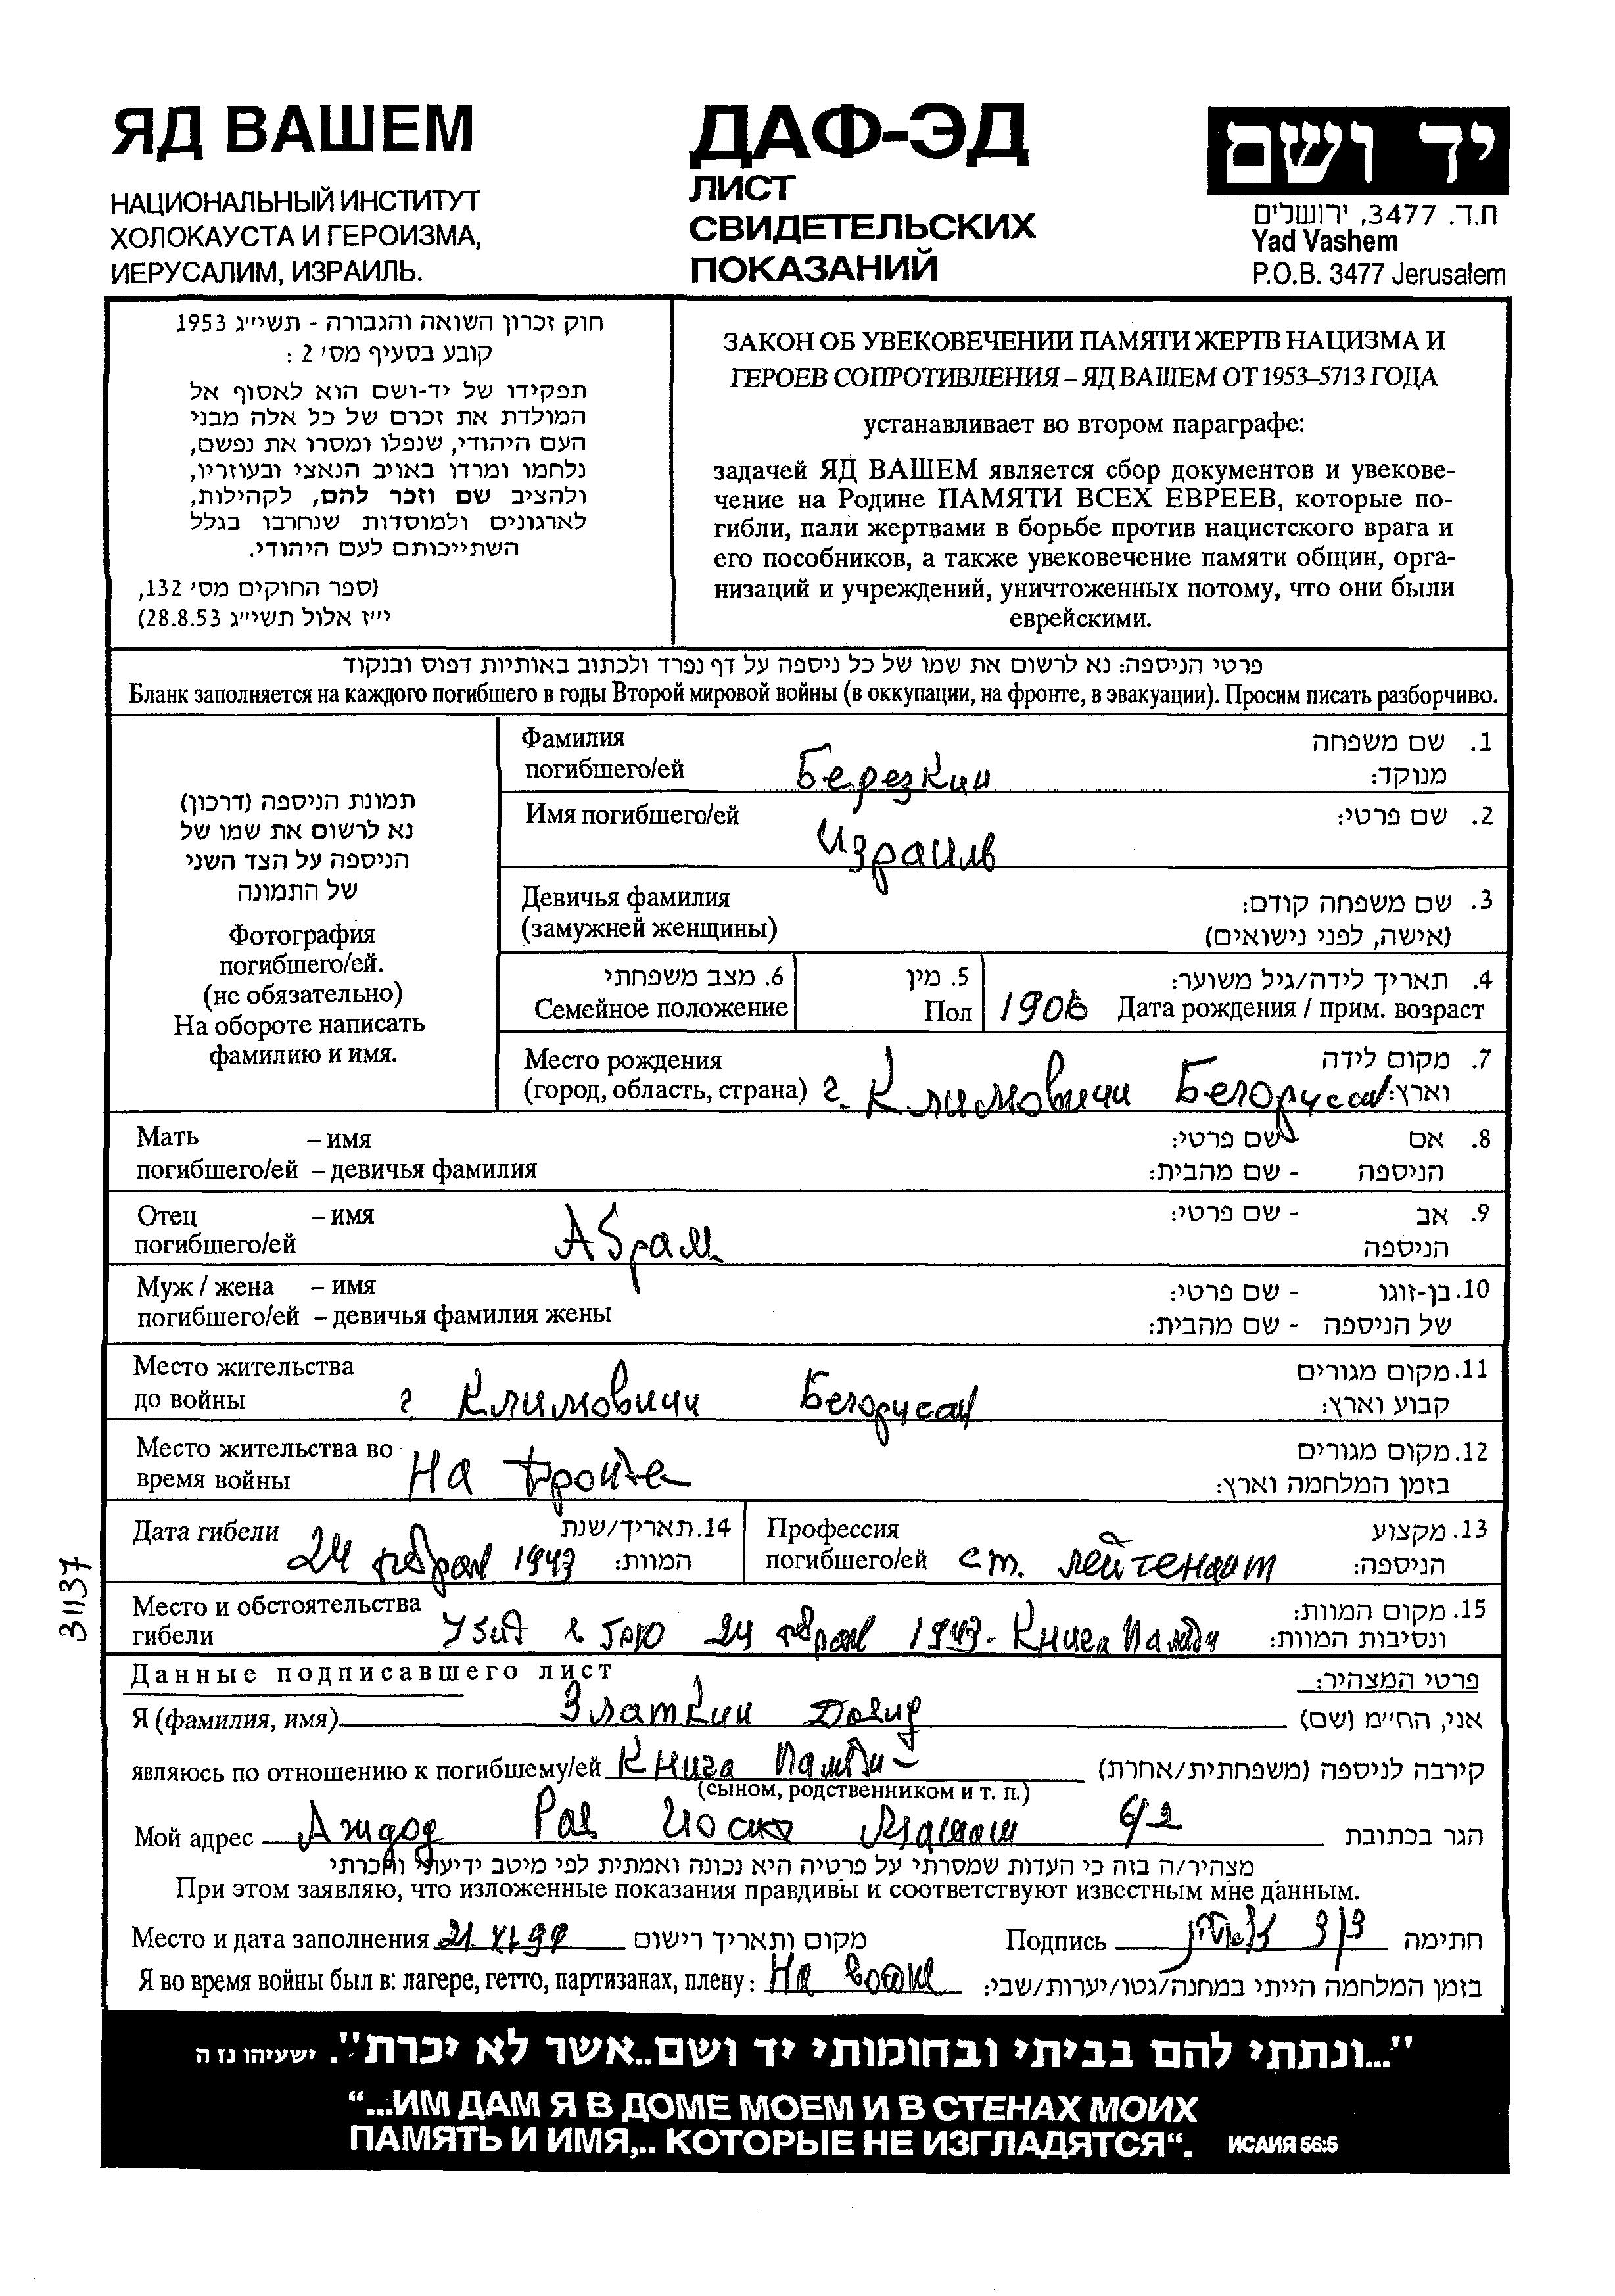 ЯД ВАШЕМ
НАЦИОНАЛЬНЫЙ ИНСТИТУТ
ХОЛОКАУСТА И ГЕРОИЗМА,
ИЕРУСАЛИМ, ИЗРАИЛЬ.
ДАФ-ЭД
ЛИСТ
СВИДЕТЕЛЬСКИХ
ПОКАЗАНИЙ
יד ושם
ת.ד. 3477, ירושלים
Yad Vashem
P.O.B. 3477 Jerusalem
חוק זכרון השואה והגבורה - תשי״ג 1953
קובע בסעיף מס׳ 2 :
תפקידו של יד-ושם הוא לאסוף אל
המולדת את זכרם של כל אלה מבני
העם היהודי, שנפלו ומסרו את נפשם,
נלחמו ומרדו באויב הנאצי ובעוזריו,
ולהציב שם וזכר להם, לקהילות,
לארגונים ולמוסדות שנחרבו בגלל
השתייכותם לעם היהודי.
(ספר החוקים מס׳ 132,
י״ז אלול תשי״ג 28.8.53)
ЗАКОН ОБ УВЕКОВЕЧЕНИИ ПАМЯТИ ЖЕРТВ НАЦИЗМА И
ГЕРОЕВ СОПРОТИВЛЕНИЯ – ЯД ВАШЕМ ОТ 1953–5713 ГОДА
устанавливает во втором параграфе:
задачей ЯД ВАШЕМ является сбор документов и увекове-
чение на Родине ПАМЯТИ ВСЕХ ЕВРЕЕВ, которые по-
гибли, пали жертвами в борьбе против нацистского врага и
его пособников, а также увековечение памяти общин, орга-
низаций и учреждений, уничтоженных потому, что они были
еврейскими.
פרטי הניספה: נא לרשום את שמו של כל ניספה על דף נפרד ולכתוב באותיות דפוס ובנקוד
Бланк заполняется на каждого погибшего в годы Второй мировой войны (в оккупации, на фронте, в эвакуации). Просим писать разборчиво.
תמונת הניספה (דרכון)
נא לרשום את שמו של
הניספה על הצד השני
של התמונה
Фотография
погибшего/ей.
(не обязательно)
На обороте написать
фамилию и имя.
Фамилия 1. שם משפחה
погибшего/ей Березкин מנוקד:
Имя погибшего/ей 2. שם פרטי:
Израиль
Девичья фамилия 3. שם משפחה קודם:
(замужней женщины) (אישה, לפני נישואים)
6. מצב משפחתי 5. מין 4. תאריך לידה/גיל משוער:
Семейное положение Пол 1906 Дата рождения / прим. возраст
Место рождения 7. מקום לידה
(город, область, страна) г. Климовичи Белоруссия וארץ:
Мать – имя 8. אם - שם פרטי:
погибшего/ей – девичья фамилия הניספה - שם מהבית:
Отец – имя 9. אב - שם פרטי:
погибшего/ей Абрам הניספה
Муж / жена – имя 10. בן-זוגו - שם פרטי:
погибшего/ей – девичья фамилия жены של הניספה - שם מהבית:
Место жительства 11. מקום מגורים
до войны г. Климовичи Белоруссия קבוע וארץ:
Место жительства во 12. מקום מגורים
время войны На фронте בזמן המלחמה וארץ:
Дата гибели 14. תאריך/שנת Профессия 13. מקצוע
24 февраля 1943 המוות: погибшего/ей ст. лейтенант הניספה:
Место и обстоятельства 15. מקום המוות:
гибели Убит в бою 24 февраля 1943 - Книга Памяти ונסיבות המוות:
31137
Данные подписавшего лист פרטי המצהיר:
Я (фамилия, имя) Златкин Давид אני, הח״מ (שם)
являюсь по отношению к погибшему/ей Книга Памяти קירבה לניספה (משפחתית/אחרת)
(сыном, родственником и т. п.)
Мой адрес Ашдод Рав 6/2 הגר בכתובת
מצהיר/ה בזה כי העדות שמסרתי על פרטיה היא נכונה ואמתית לפי מיטב ידיעתי והכרתי
При этом заявляю, что изложенные показания правдивы и соответствуют известным мне данным.
Место и дата заполнения 21. XI. 99 מקום ותאריך רישום Подпись חתימה
Я во время войны был в: лагере, гетто, партизанах, плену: На войне בזמן המלחמה הייתי במחנה/גטו/יערות/שבי:
"...ונתתי להם בביתי ובחומותי יד ושם..אשר לא יכרת". ישעיהו נז ה
“...ИМ ДАМ Я В ДОМЕ МОЕМ И В СТЕНАХ МОИХ
ПАМЯТЬ И ИМЯ,.. КОТОРЫЕ НЕ ИЗГЛАДЯТСЯ“. ИСАИЯ 56:5